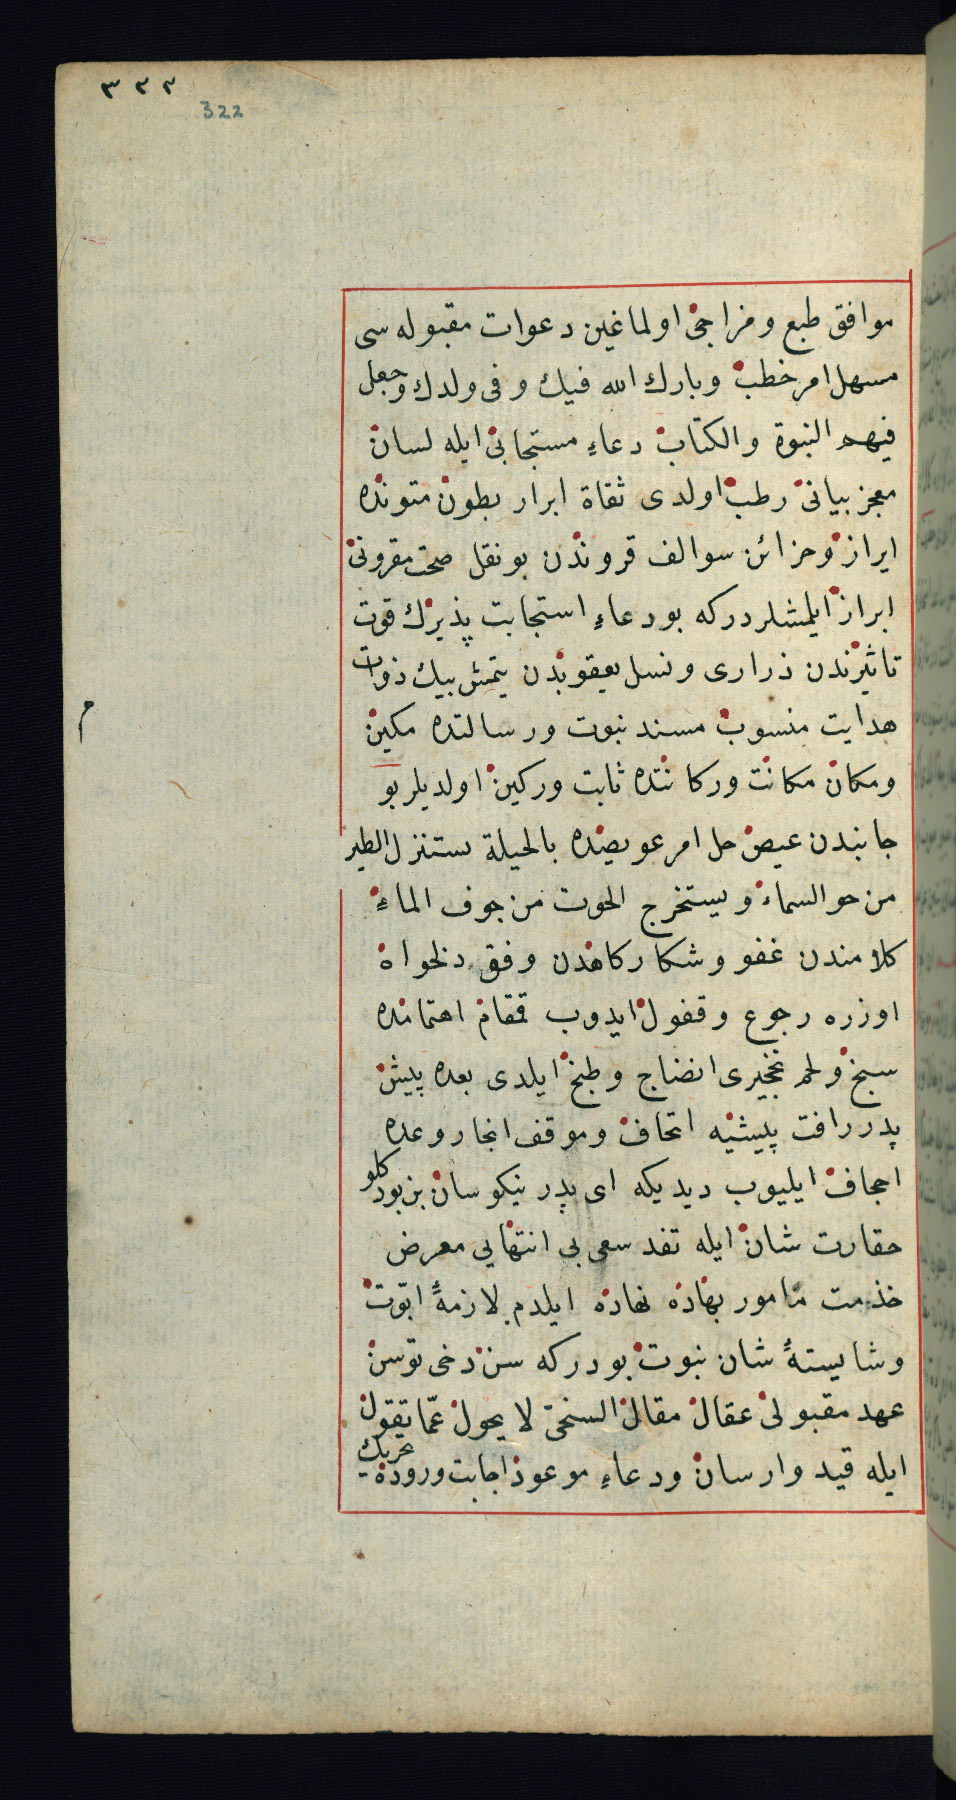 ٣٢٢
322
موافق طبع و مزاجی اولماغین دعوات مقبوله سی
مسهل امر خطب و بارك الله فیك و فی ولدك وجعل
فیهم النبوة والكتاب دعاء مستجابی ایله لسان
معجز بیانی رطب اولدی ثقاة ابرار بطون متونده
ایراز و خزائن سوالف قروندن بو نقل صحت مقرونی
ابراز ایلمشلردركه بو دعاء استجابت پذیرك قوت
تاثیرندن ذراری و نسل یعقوبدن یتمش بیك ذوات
هدایت منسوب مسند نبوت ورسالتده مكین
ومكان مكانت وركانتده ثابت وركین اولدیلر بو
جانبدن عیص حل امر عویصده بالحیلة یستنزل الطیر
من حو السماء ویستخرج الحوت من جوف الماء
كلامندن غفو و شكاركاهدن وفق دلخواه
اوزره رجوع وقفول ایدوب قمقام اهتمامنده
سبخ و لحم نخجیری انضاج و طبخ ایلدی بعده پیش
پدر رافت پیشیه اتحاف وموقف انجاز وعده
احجاف ایلیوب دیدیكه ای پدر نیكو سان بزبودكلو
حقارت شان ایله تفد سعی بی انتهایی معرض
خذمت مامور بهاده نهاده ایلدم لازمهٔ ابوت
وشایستهٔ شان نبوت بودركه سن دخی توسن
عهد مقبولی عقال مقال السخیّ لا یحول عمّا یقول
ایله قید وارسان ودعاء موعود اجابت ورودهٔ
تحریك
م